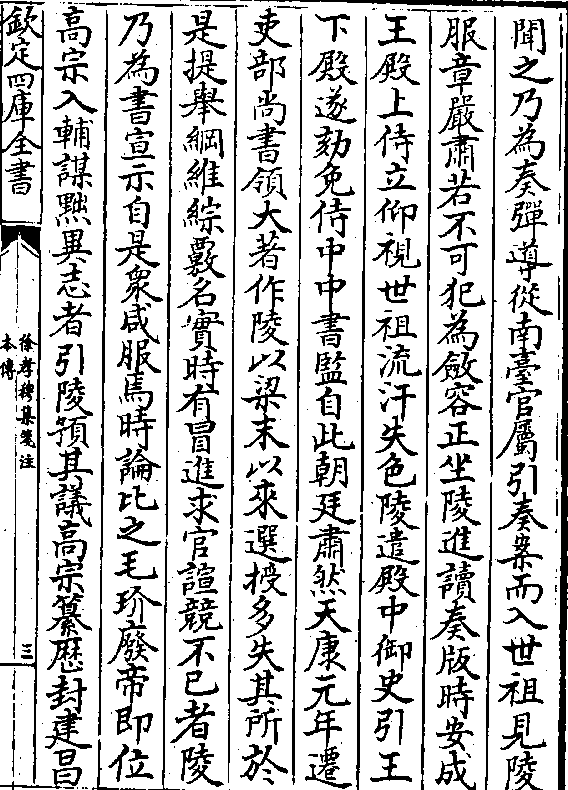 聞之乃為奏彈導從南臺官屬引奏案而入世祖見陵
服章嚴肅若不可犯為斂容正坐陵進讀奏版時安成
王殿上侍立仰視世祖流汗失色陵遣殿中御史引王
下殿遂劾免侍中中書監自此朝廷肅然天康元年遷
吏部尚書領大著作陵以梁末以來選授多失其所於
是提舉綱維綜覈名實時有冒進求官諠競不已者陵
乃為書宣示自是衆咸服焉時論比之毛玠廢帝即位
高宗入輔謀黜異志者引陵預其議高宗纂歴封建昌
欽定四庫全書
徐孝穆集箋注
本傳
三